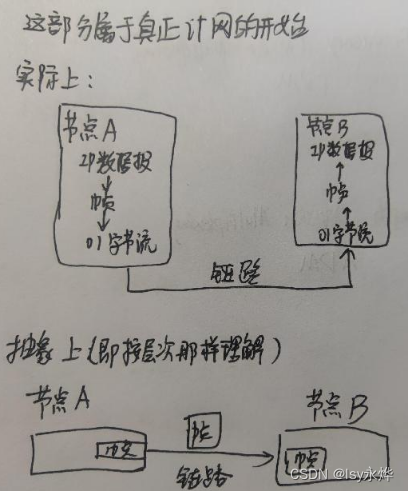 这部分属于真正计网的开始
实际上：
节点A
IP数据报
帧
01字节流
节点B
IP数据报
帧
01字节流
链路
抽象上(即按层次那样理解)
节点A
帧
帧
链路
节点B
帧
CSDN @lsy永烨